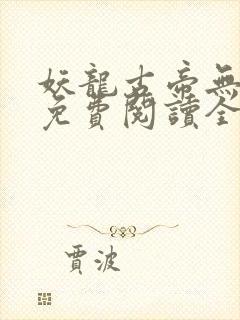 妖龍古帝無
免費閱讀全
賈波